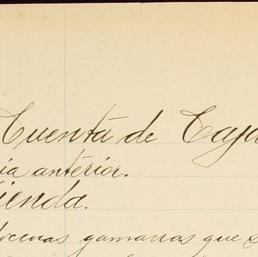 Cuenta de Caja
ia anterior.
ienda.
docenas gamarras que s